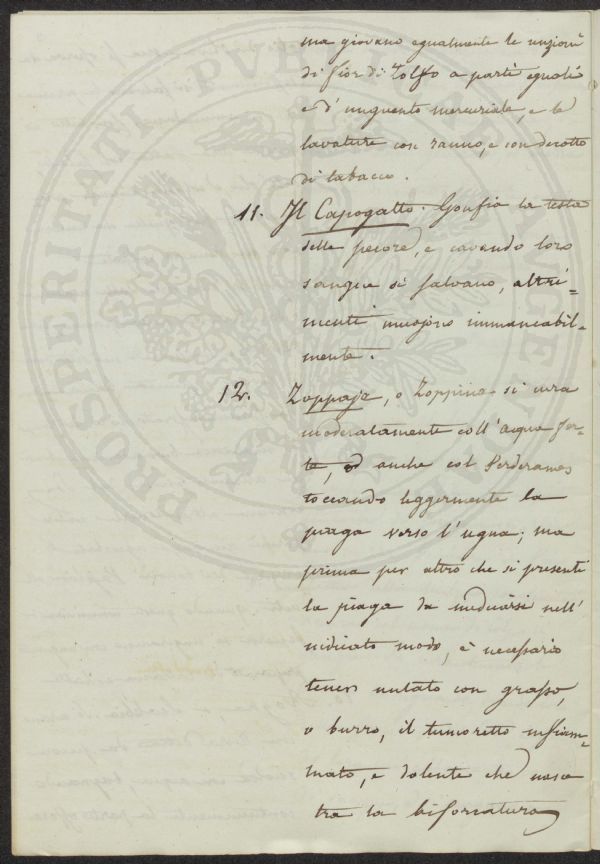 ma giovano egualmente le unzioni
di fior di Zolfo a parti eguali
e d'unguento mercuriale, e le
lavature con ranno, e con decotto
di tabacco.
11. Il Capogatto. Gonfia la testa
delle pecore, e cavando loro
sangue si salvano, altri=
menti muojono immancabil-
mente.
12. Zoppaje, o Zoppina si cura
moderatamente coll'acqua for-
te, od anche col Verderame
toccando leggermente la
piaga verso l'ugna; ma
prima per altro che si presenti
la piaga da medicarsi nell'
indicato modo, è necessario
tener untato con grasso,
o burro, il tumoretto infiam-
mato, e dolente che nasce
tra la biforcatura
PROSPERITATI PUBLICAE